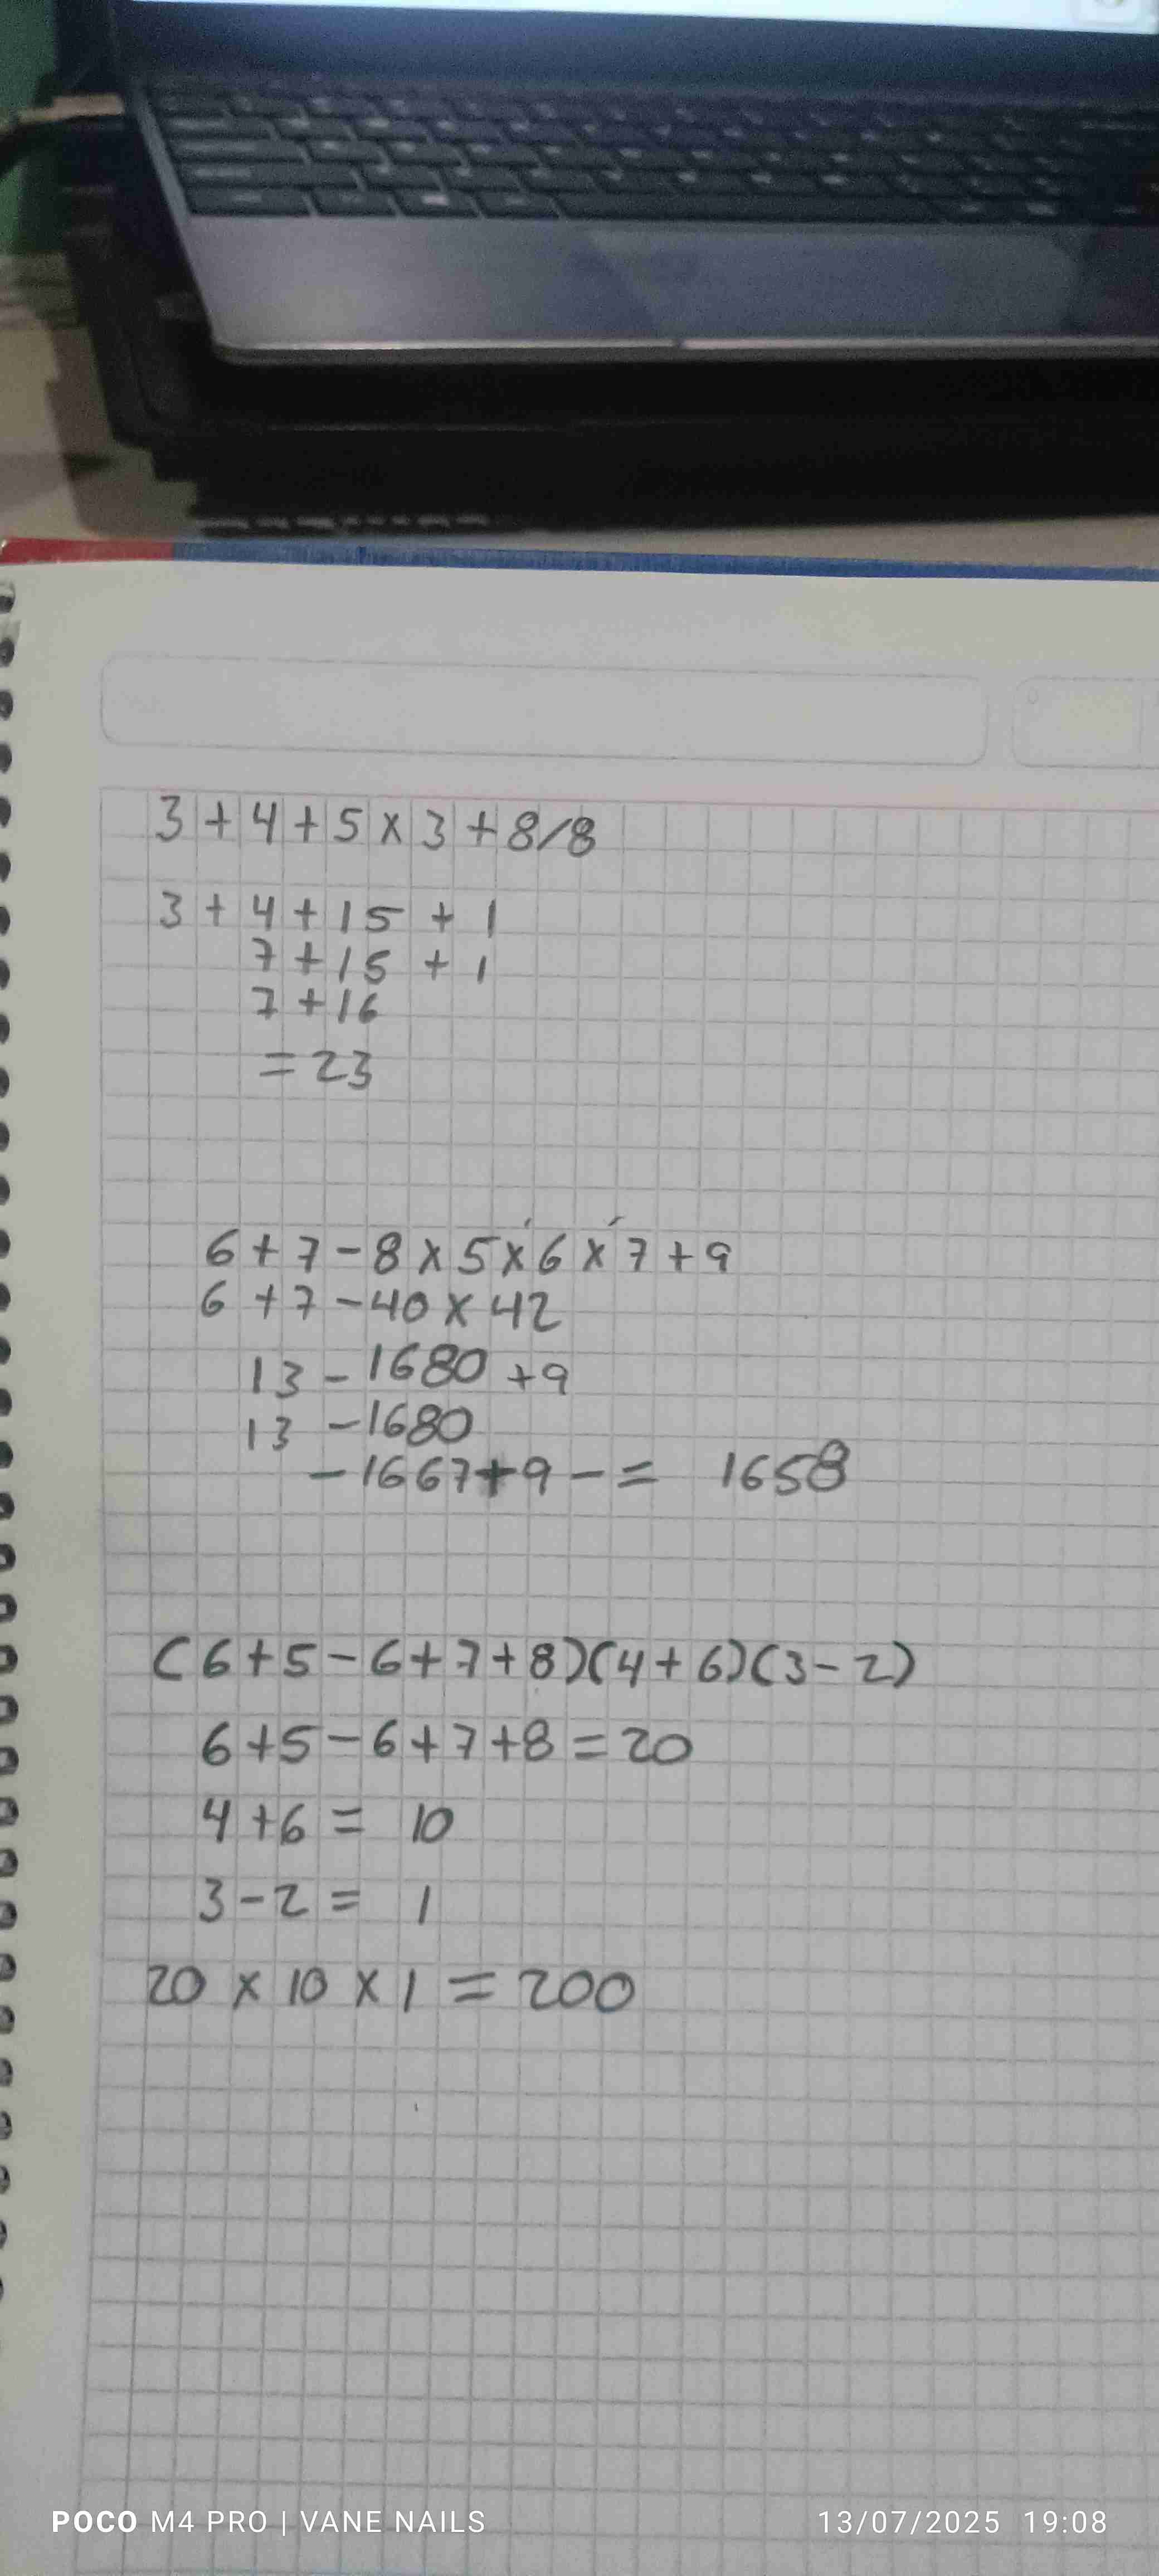 3+4+5x3+8/8
3+4+15+1
7+15+1
7+16
=23
6+7-8x5x6x7+9
6+7-40x42
13-1680+9
13-1680
-1667+9-= 1658
(6+5-6+7+8)(4+6)(3-2)
6+5-6+7+8=20
4+6= 10
3-2= 1
20x10x1=200
POCO M4 PRO | VANE NAILS
13/07/2025 19:08